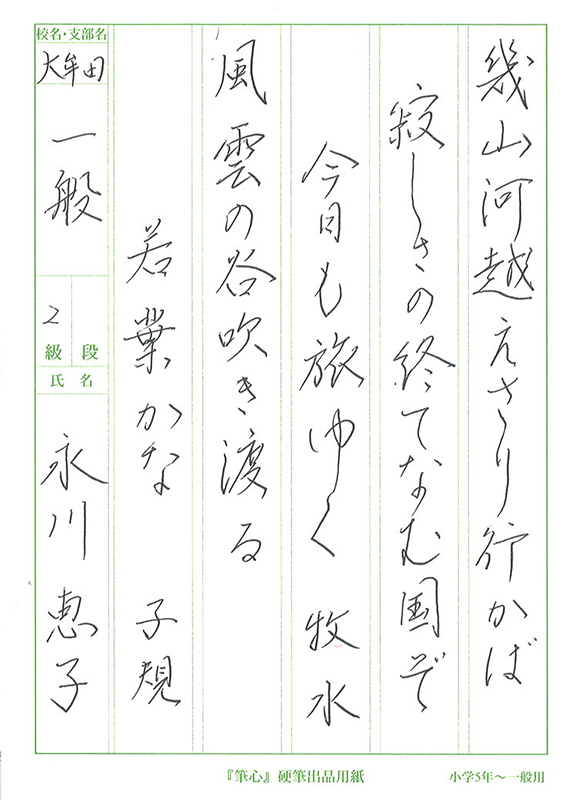 幾山河越えさり行かば
寂しさの終てなむ国ぞ
今日も旅ゆく 牧水
風雲の谷吹き渡る
若葉かな 子規
校名・支部名
大牟田
一般
2
級 段
氏名
永川恵子
『筆心』硬筆出品用紙
小学5年〜一般用